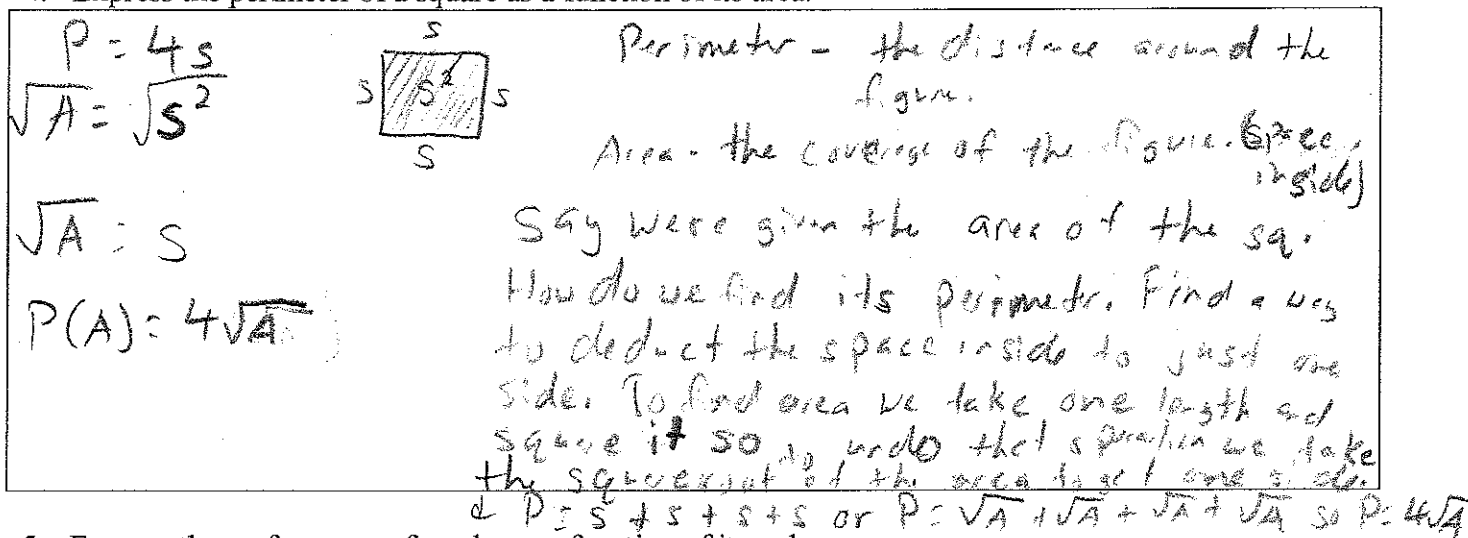 4. Express the perimeter of a square as a function of its area.
P = 4s
√A = √s²
√A = s
P(A) = 4√A
s
s s² s
s
Perimeter - the distance around the
figure.
Area - the coverage of the figure. (space
inside)
Say were given the area of the sq.
How do we find its perimeter. Find a way
to deduct the space inside to just one
side. To find area we take one length and
square it so to undo that operation we take
the squareroot of the area to get one side.
& P = s + s + s + s or P = √A + √A + √A + √A so P = 4√A